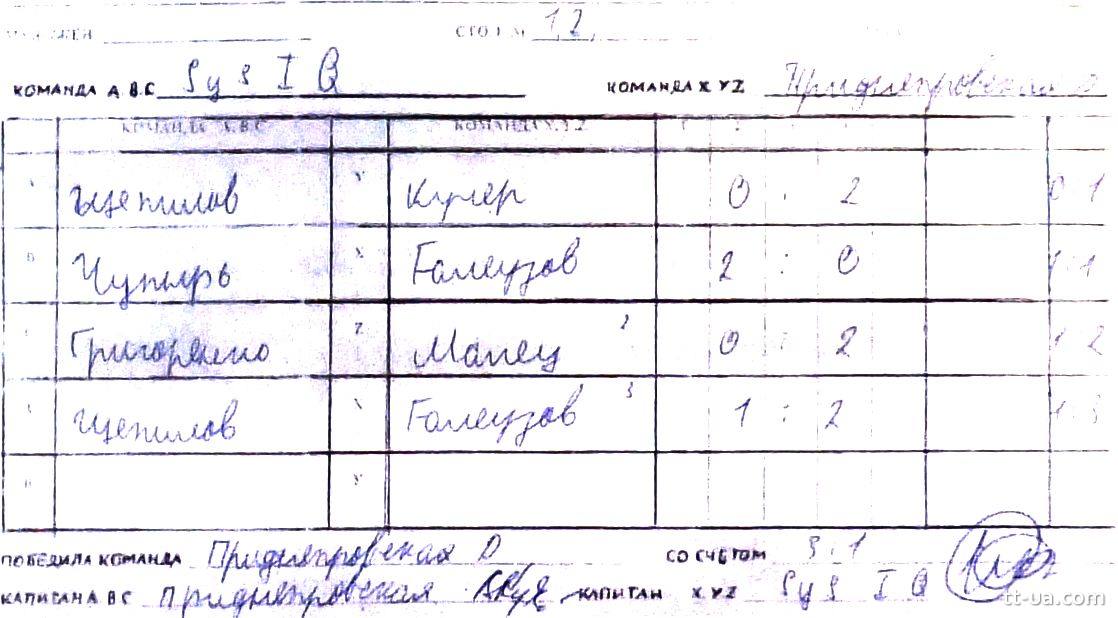 СТОЛ № 12
КОМАНДА А В.С Sys I Q КОМАНДА X YZ Приднепровская
КОМАНДА А.В.С КОМАНДА X.Y.Z
Щепилов Y Кучер 0 : 2 0 1
B Чупырь X Галеузов 2 : 0 1 1
Григоренко Z Малец 0 : 2 1 2
Щепилов X Галеузов 1 : 2 1 3
B Y
ПОБЕДИЛА КОМАНДА Приднепровская СО СЧЕТОМ 3 : 1
КАПИТАН А В С Приднепровская КАПИТАН X YZ Sys I Q
tt-ua.com